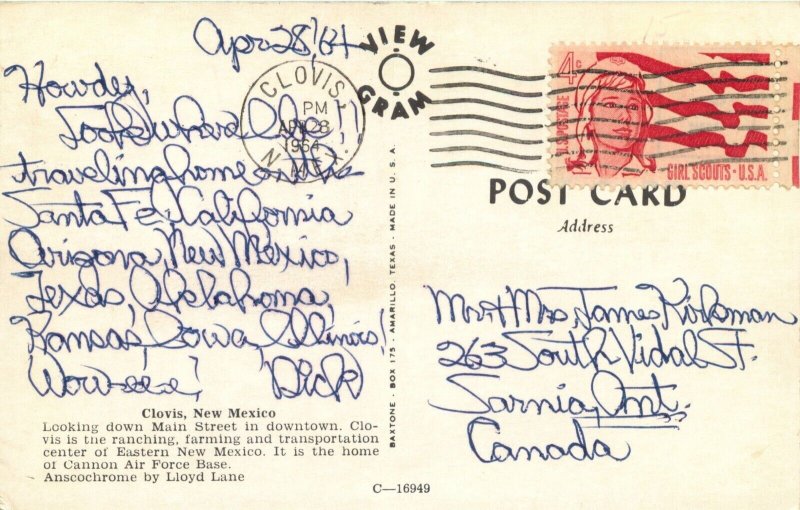 Apr 28/64
Howdy,
Look where I be!!
traveling home on the
Santa Fe, California
Arizona, New Mexico,
Texas, Oklahoma,
Kansas, Iowa, Illinois!
Wow-eee! Dick
Clovis, New Mexico
Looking down Main Street in downtown. Clo-
vis is the ranching, farming and transportation
center of Eastern New Mexico. It is the home
of Cannon Air Force Base.
Anscochrome by Lloyd Lane
CLOVIS,
PM
APR 28
1964
N. MEX.
VIEW
GRAM
BAXTONE - BOX 175 - AMARILLO, TEXAS - MADE IN U. S. A.
C—16949
4c
U.S. POSTAGE
GIRL SCOUTS · U.S.A.
POST CARD
Address
Mr + Mrs, James Kirkman
263 South Vidal St.
Sarnia, Ont.
Canada